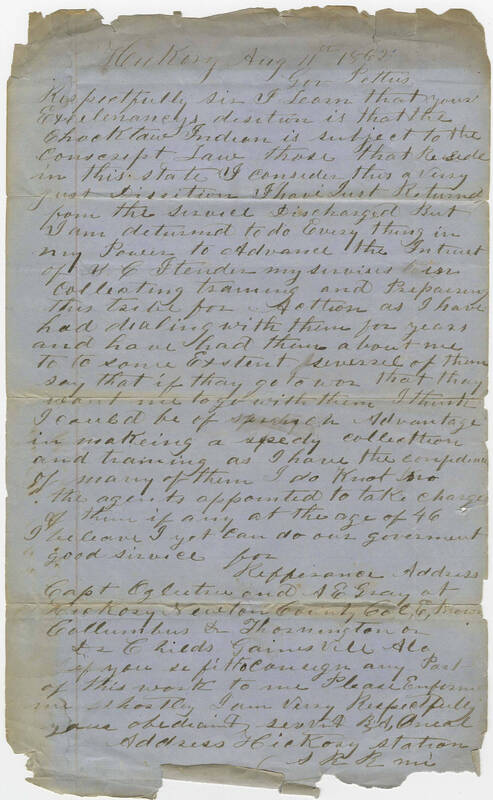 Hickory Aug 11th 1862
Gov Pettus
Respectfully sir I Learn that your
Exelenancys desition is that the
Chocktaw Indian is subject to the
Conscript Law those that Reside
in this state I consider this a very
just Dissition I have Just Returned
from the service Discharged But
I am deturmd to do Every thing in
my Power to Advance the Intrust
of S C I tender my servises in
collecting training and Prepairing
this tribe for Acttion as I have
had dealing with them for years
and have had them about me
to to some Exstent severrel of them
say that if thay go to wor that thay
want me to go with them I think
I could be of Advantage
in makeing a speedy collecttion
and training as I have the confidence
of many of them I do Knot no
the agents appointed to take charge
of them if any at the age of 46
I beleave I yet can do our goverment
good service for
Refferance Address
Capt Ogletree and A E Gray at
Hickory Newton County Col E,
Collumbus & Thornington or
Dr Childs Gainesvill Ala
if you se fitt to consign any Part
of this work to me Please Enform
me shortly I am very Respectfully
your obediant servt B A
Address Hickory station
S R R mi